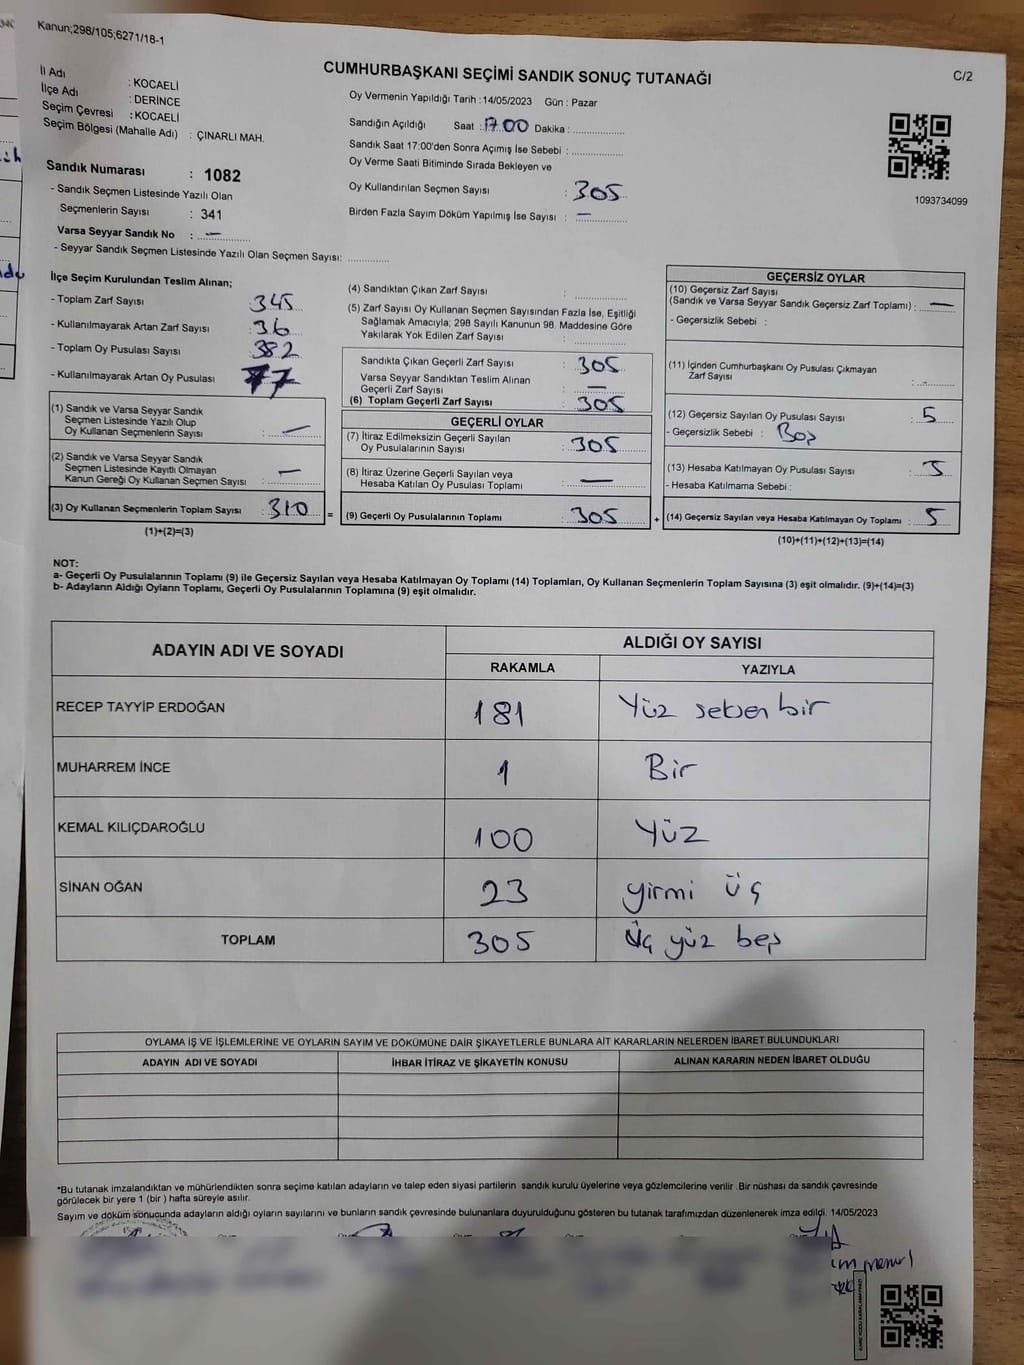 Kanun;298/105;6271/18-1
CUMHURBAŞKANI SEÇİMİ SANDIK SONUÇ TUTANAĞI
C/2
İl Adı : KOCAELİ
İlçe Adı : DERİNCE
Seçim Çevresi : KOCAELİ
Seçim Bölgesi (Mahalle Adı) : ÇINARLI MAH.
Sandık Numarası : 1082
- Sandık Seçmen Listesinde Yazılı Olan
Seçmenlerin Sayısı : 341
Varsa Seyyar Sandık No : —
- Seyyar Sandık Seçmen Listesinde Yazılı Olan Seçmen Sayısı: ..............
Oy Vermenin Yapıldığı Tarih :14/05/2023 Gün : Pazar
Sandığın Açıldığı Saat :17.00 Dakika : ..............
Sandık Saat 17:00'den Sonra Açımış İse Sebebi : ..............
Oy Verme Saati Bitiminde Sırada Bekleyen ve
Oy Kullandırılan Seçmen Sayısı : 305
Birden Fazla Sayım Döküm Yapılmış İse Sayısı : —
1093734099
İlçe Seçim Kurulundan Teslim Alınan;
- Toplam Zarf Sayısı 345
- Kullanılmayarak Artan Zarf Sayısı : 36
- Toplam Oy Pusulası Sayısı : 382
- Kullanılmayarak Artan Oy Pusulası 77
(1) Sandık ve Varsa Seyyar Sandık
Seçmen Listesinde Yazılı Olup
Oy Kullanan Seçmenlerin Sayısı : —
(2) Sandık ve Varsa Seyyar Sandık
Seçmen Listesinde Kayıtlı Olmayan
Kanun Gereği Oy Kullanan Seçmen Sayısı : —
(3) Oy Kullanan Seçmenlerin Toplam Sayısı : 310 =
(1)+(2)=(3)
(4) Sandıktan Çıkan Zarf Sayısı : ..............
(5) Zarf Sayısı Oy Kullanan Seçmen Sayısından Fazla İse, Eşitliği
Sağlamak Amacıyla; 298 Sayılı Kanunun 98. Maddesine Göre
Yakılarak Yok Edilen Zarf Sayısı : ..............
Sandıkta Çıkan Geçerli Zarf Sayısı : 305
Varsa Seyyar Sandıktan Teslim Alınan
Geçerli Zarf Sayısı : —
(6) Toplam Geçerli Zarf Sayısı : 305
GEÇERLİ OYLAR
(7) İtiraz Edilmeksizin Geçerli Sayılan
Oy Pusulalarının Sayısı : 305
(8) İtiraz Üzerine Geçerli Sayılan veya
Hesaba Katılan Oy Pusulası Toplamı : —
(9) Geçerli Oy Pusulalarının Toplamı : 305 +
GEÇERSİZ OYLAR
(10) Geçersiz Zarf Sayısı
(Sandık ve Varsa Seyyar Sandık Geçersiz Zarf Toplamı) : —
- Geçersizlik Sebebi :
(11) İçinden Cumhurbaşkanı Oy Pusulası Çıkmayan
Zarf Sayısı : ..............
(12) Geçersiz Sayılan Oy Pusulası Sayısı : 5
- Geçersizlik Sebebi : Boş
(13) Hesaba Katılmayan Oy Pusulası Sayısı : 5
- Hesaba Katılmama Sebebi :
(14) Geçersiz Sayılan veya Hesaba Katılmayan Oy Toplamı : 5
(10)+(11)+(12)+(13)=(14)
NOT:
a- Geçerli Oy Pusulalarının Toplamı (9) ile Geçersiz Sayılan veya Hesaba Katılmayan Oy Toplamı (14) Toplamları, Oy Kullanan Seçmenlerin Toplam Sayısına (3) eşit olmalıdır. (9)+(14)=(3)
b- Adayların Aldığı Oyların Toplamı, Geçerli Oy Pusulalarının Toplamına (9) eşit olmalıdır.
ADAYIN ADI VE SOYADI ALDIĞI OY SAYISI
RAKAMLA YAZIYLA
RECEP TAYYİP ERDOĞAN 181 Yüz seksen bir
MUHARREM İNCE 1 Bir
KEMAL KILIÇDAROĞLU 100 Yüz
SİNAN OĞAN 23 yirmi üç
TOPLAM 305 Üç yüz beş
OYLAMA İŞ VE İŞLEMLERİNE VE OYLARIN SAYIM VE DÖKÜMÜNE DAİR ŞİKAYETLERLE BUNLARA AİT KARARLARIN NELERDEN İBARET BULUNDUKLARI
ADAYIN ADI VE SOYADI İHBAR İTİRAZ VE ŞİKAYETİN KONUSU ALINAN KARARIN NEDEN İBARET OLDUĞU
*Bu tutanak imzalandıktan ve mühürlendikten sonra seçime katılan adayların ve talep eden siyasi partilerin sandık kurulu üyelerine veya gözlemcilerine verilir .Bir nüshası da sandık çevresinde
görülecek bir yere 1 (bir ) hafta süreyle asılır.
Sayım ve döküm sonucunda adayların aldığı oyların sayılarını ve bunların sandık çevresinde bulunanlara duyurulduğunu gösteren bu tutanak tarafımızdan düzenlenerek imza edildi. 14/05/2023